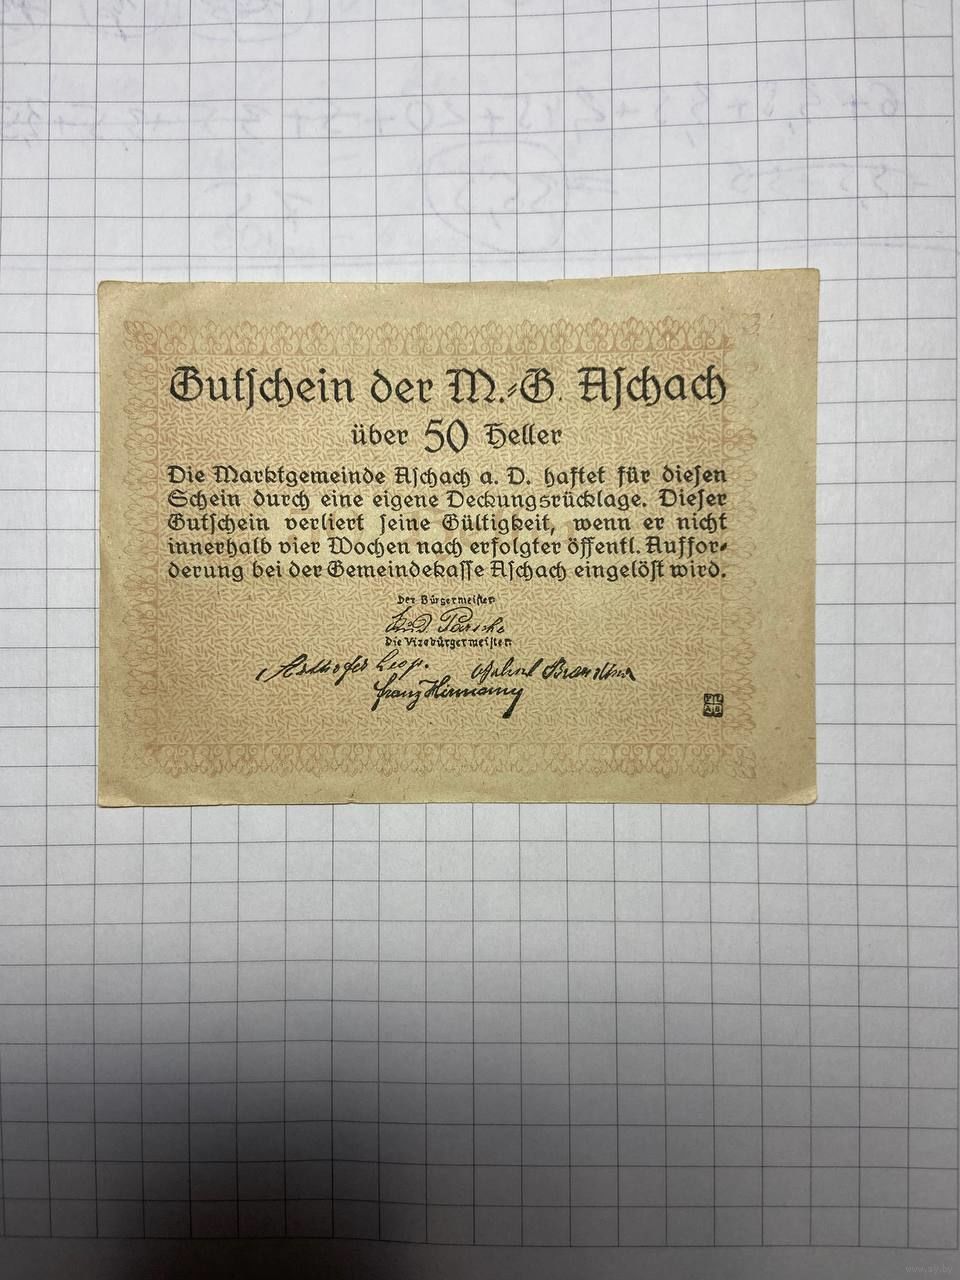 Gutſchein der M.-G. Aſchach
über 50 Heller
Die Marktgemeinde Aſchach a. D. haftet für dieſen
Schein durch eine eigene Deckungsrücklage. Dieſer
Gutſchein verliert ſeine Gültigkeit, wenn er nicht
innerhalb vier Wochen nach erfolgter öffentl. Auffor-
derung bei der Gemeindekaſſe Aſchach eingelöſt wird.
Der Bürgermeiſter
Die Vizebürgermeiſter
Leop.
Franz
www.ay.by